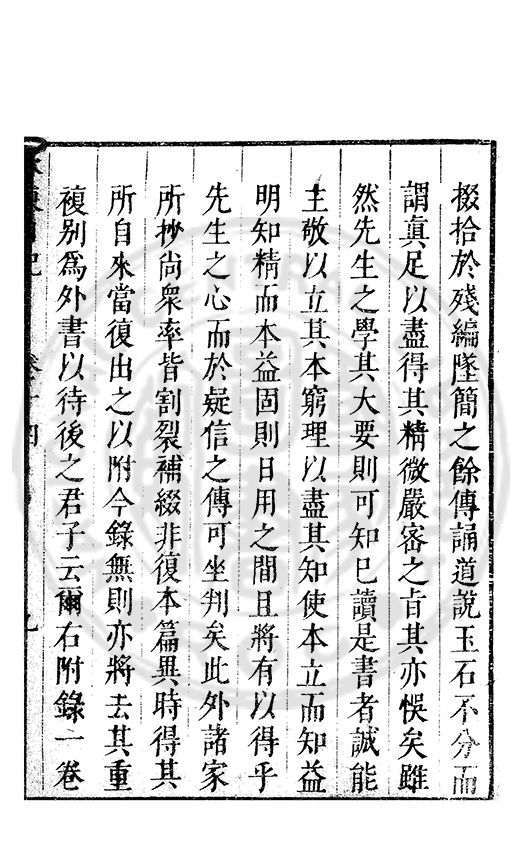 掇拾於殘編墜簡之餘傳誦道說玉石不分而
謂眞足以盡得其精微嚴密之旨其亦悞矣雖
然先生之學其大要則可知已讀是書者誠能
主敬以立其本窮理以盡其知使本立而知益
明知精而本益固則日用之間且將有以得乎
先生之心而於疑信之傳可坐判矣此外諸家
所抄尚衆率皆割裂補綴非復本篇異時得其
所自來當復出之以附今錄無則亦將去其重
複别爲外書以待後之君子云爾右附錄一卷